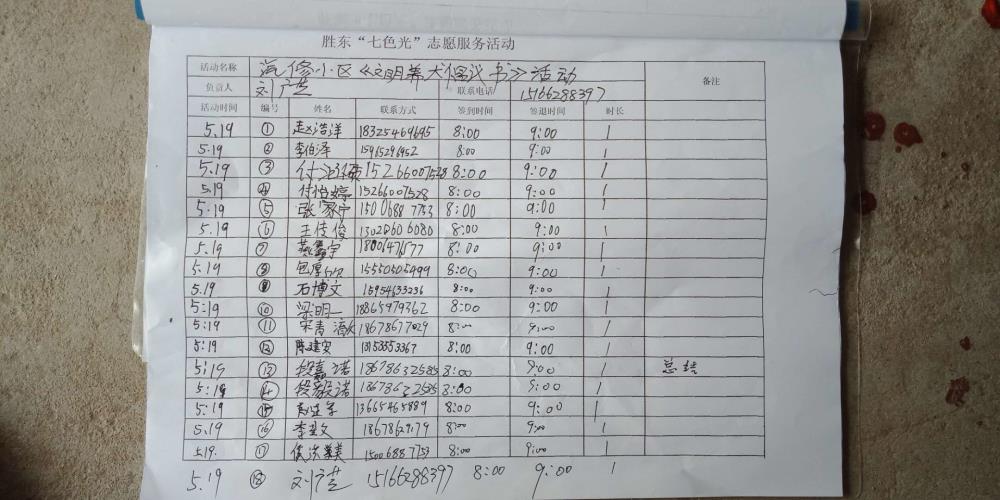 胜东“七色光”志愿服务活动
活动名称 汽修小区《文明养犬倡议书》活动 备注
负责人 刘广芝 联系电话 15166288397
活动时间 编号 姓名 联系方式 签到时间 签退时间 时长
5.19 ① 赵浩洋 18325469695 8:00 9:00 1
5.19 ② 李伯泽 15965296952 8:00 9:00 1
5.19 ③ 15266007528 8:00 9:00 1
5.19 ④ 付怡婷 15266007528 8:00 9:00 1
5.19 ⑤ 张家宁 15006887753 8:00 9:00 1
5.19 ⑥ 王传俊 8:00 9:00 1
5.19 ⑦ 8:00 9:00 1
5.19 ⑧ 15550505999 8:00 9:00 1
5.19 石博文 15954633236 8:00 9:00 1
5:19 ⑩ 梁明一 18865479362 8:00 9:00 1
5:19 ⑪ 18678677029 8:00 9:00 1
5:19 ⑫ 陈建安 13153553367 8:00 9:00 1
5:19 ⑬ 段嘉诺 18678632585 8:00 9:00 1 总结
5:19 ⑭ 段毅诺 8:00 9:00 1
5:19 ⑮ 13665465889 8:00 9:00 1
5.19 ⑯ 8:00 9:00 1
5.19. ⑰ 15006887753 8:00 9:00 1
5.19 ⑱ 刘广芝 15166288397 8:00 9:00 1